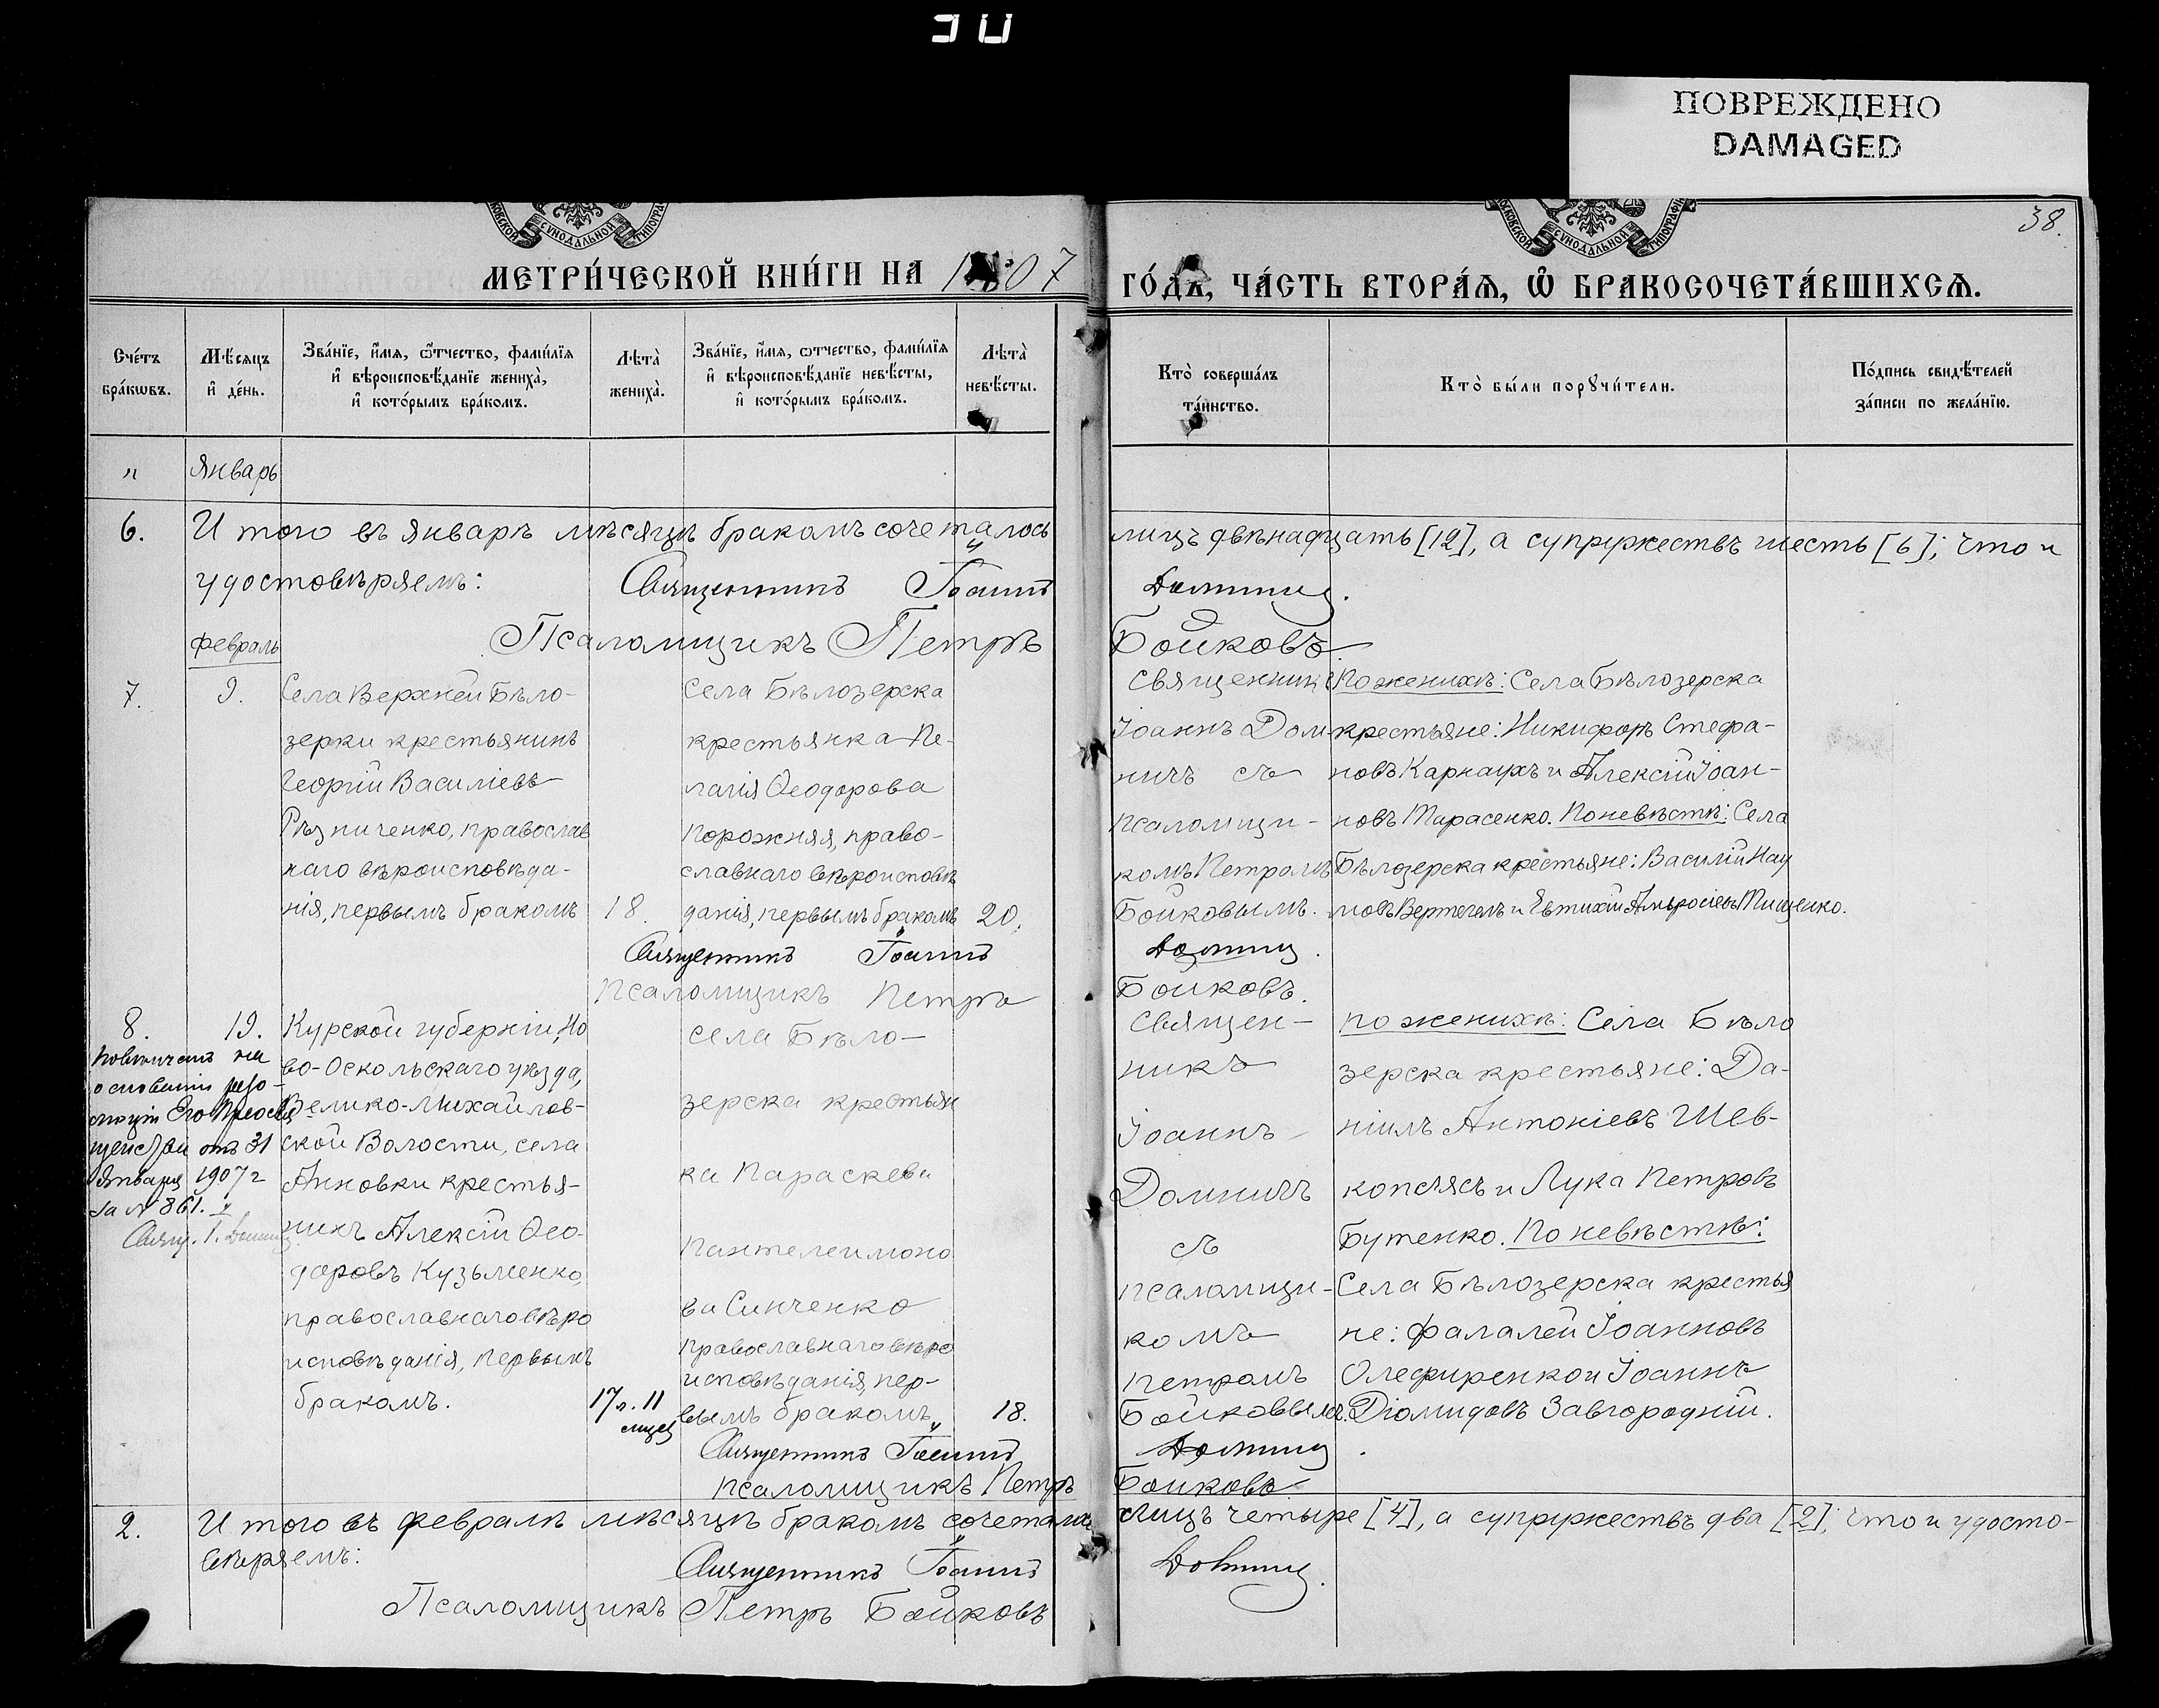 ПОВРЕЖДЕНО
DAMAGED
38.
МОСКОВСКОЙ СѴНОДАЛЬНОЙ ТИПОГРАФІИ
МОСКОВСКОЙ СѴНОДАЛЬНОЙ ТИПОГРАФІИ
МЕТРИ́ЧЕСКОЙ КНИ́ГИ НА 1907
ГО́ДЪ, ЧА́СТЬ ВТОРА́Ѧ, Ѡ БРАКОСОЧЕТА́ВШИХСѦ.
Сче́тъ бра́кѡвъ.
Мѣ́сѧцъ и҆ де́нь.
Зва́нїе, и҆́мѧ, ѻ҆́тчество, фами́лїѧ и҆ вѣроисповѣ́данїе жениха̀, и҆ кото́рымъ бра́комъ.
Лѣта̀ жениха̀.
Зва́нїе, и҆́мѧ, ѻ҆́тчество, фами́лїѧ и҆ вѣроисповѣ́данїе невѣ́сты, и҆ кото́рымъ бра́комъ.
Лѣта̀ невѣ́сты.
Кто̀ соверша́лъ та́инство.
Кто̀ бы́ли порꙋчи́тели.
По́дпись свидѣ́телей за́писи по жела́нїю.
" Январь
6. И того въ январѣ мѣсяцѣ бракомъ сочеталось лицъ двѣнадцать [12], а супружествъ шесть [6]; что и
удостовѣряемъ: Священникъ Іоаннъ Домничъ.
Псаломщикъ Петръ Бойковъ
февраль
7. 9.
Села Верхней Бѣло-
зерки крестьянинъ
Георгій Василіевъ
Рѣзниченко, православ
наго вѣроисповѣда-
нія, первымъ бракомъ
18.
Села Бѣлозерска
крестьянка Пе-
лагія Ѳеодорова
Порожняя, право-
славнаго вѣроисповѣ
данія, первымъ бракомъ
20.
Священникъ
Іоаннъ Дом
ничъ съ
псаломщи-
комъ Петромъ
Бойковымъ.
По женихѣ: Села Бѣлозерска
крестьяне: Никифоръ Стефа-
новъ Карнаухъ и Алексій Іоан-
новъ Тарасенко. По невѣстѣ: Села
Бѣлозерска крестьяне: Василій Нау
мовъ Вертегелъ и Евтихій Амвросіевъ Тищенко.
Священникъ Іоаннъ Домничъ.
Псаломщикъ Петръ Бойковъ.
8. 19.
Повѣнчанъ на
основаніи резо-
люціи Его Преосвя
щенства отъ 31
Января 1907 г
за № 861.
Свящ. І. Домничъ
Курской губерніи, Но
во-Оскольскаго уѣзда,
Велико-Михайлов-
ской Волости, села
Анновки крестья-
нинъ Алексій Ѳео-
доровъ Кузьменко,
православнаго вѣро
исповѣданія, первымъ
бракомъ.
17 л. 11
мѣсяц
села Бѣло-
зерска крестьян
ка Параскева
Пантелеимоно
ва Синченко
православнаго вѣро
исповѣданія, пер-
вымъ бракомъ
18.
Священ-
никъ
Іоаннъ
Домничъ
съ
псаломщи-
комъ
Петромъ
Бойковымъ.
По женихѣ: Села Бѣло
зерска крестьяне: Да-
ніилъ Антоніевъ Шев-
коплясъ и Лука Петровъ
Бутенко. По невѣстѣ:
Села Бѣлозерска крестья
не: Фалалей Іоанновъ
Олефиренко и Іоаннъ
Діомидовъ Завгородній.
Священникъ Іоаннъ Домничъ.
Псаломщикъ Петръ Бойковъ
2. И того въ февралѣ мѣсяцѣ бракомъ сочеталось лицъ четыре [4], а супружествъ два [2]; что и удосто-
вѣряемъ:
Священникъ Іоаннъ Домничъ.
Псаломщикъ Петръ Бойковъ